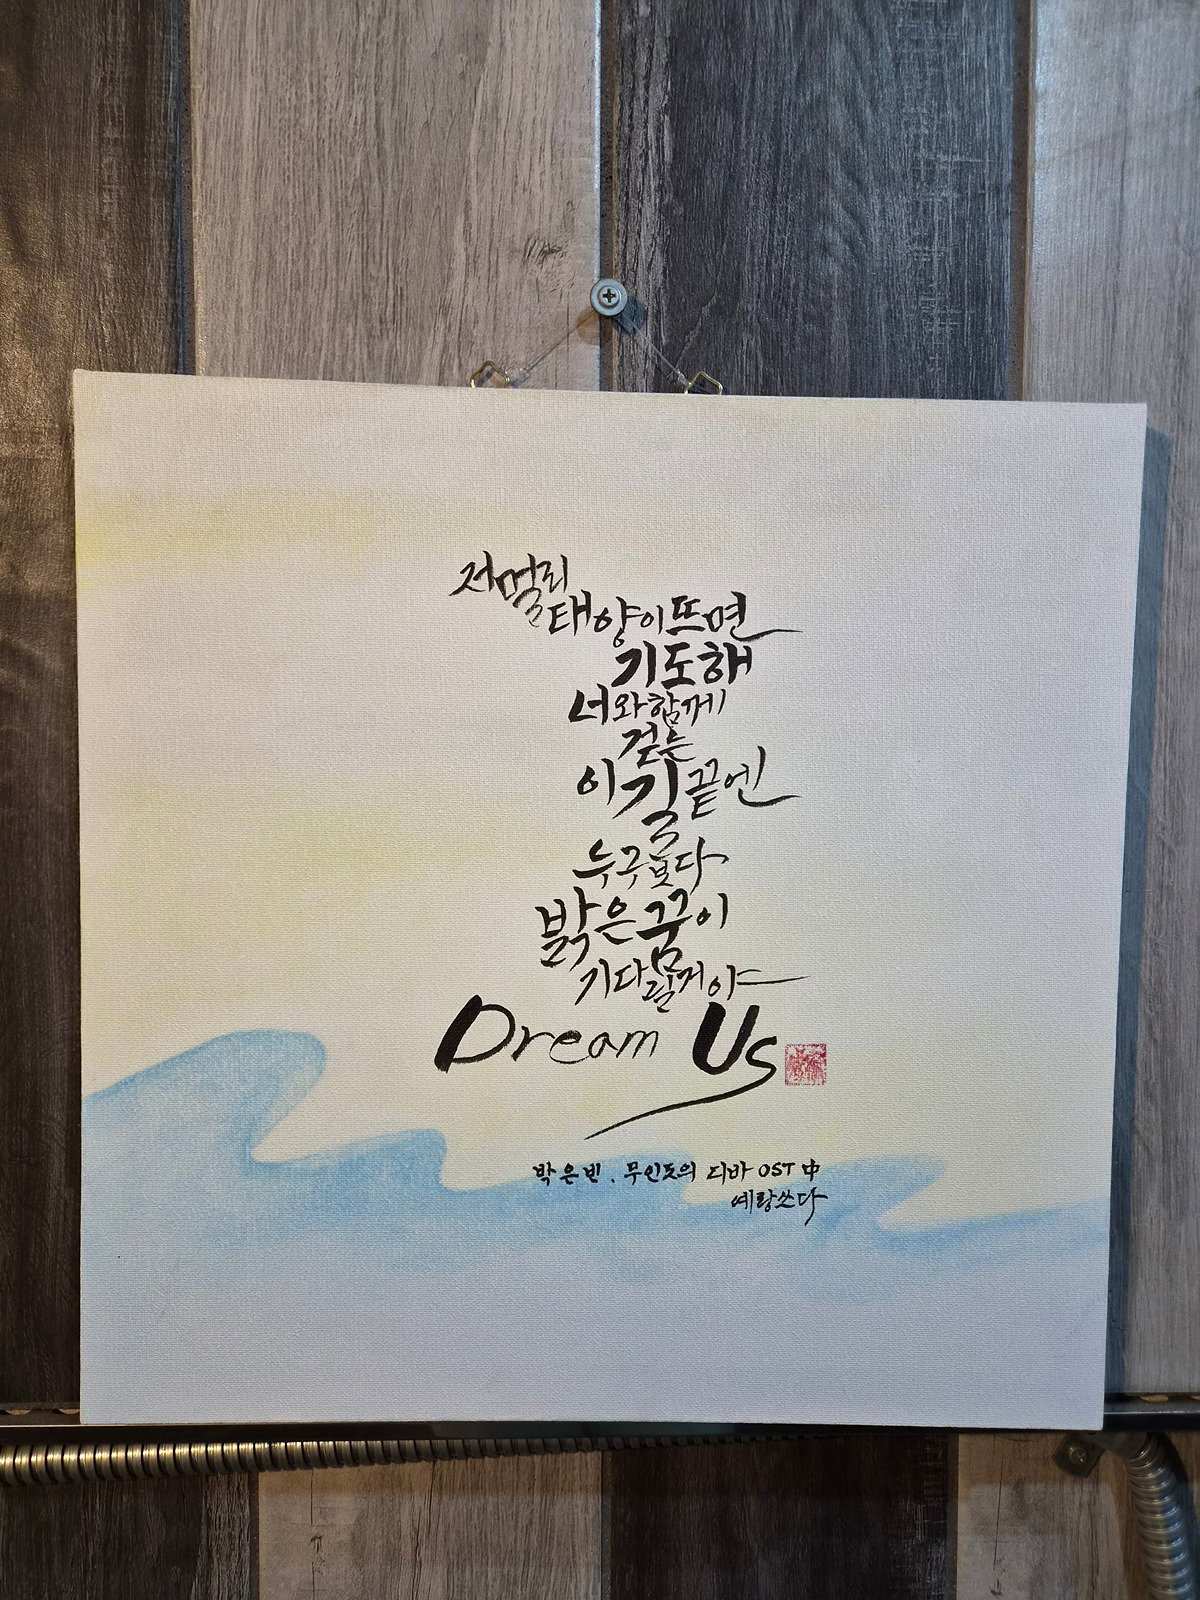 저멀리
태양이뜨면
기도해
너와함께
걷는
이길끝엔
누구보다
밝은꿈이
기다릴거야
Dream Us
박은빈. 무인도의 디바 OST 中
예랑쓰다